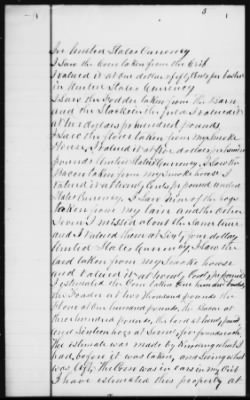 In United States Currency
I Saw the Corn taken from the Crib
I valued it at one dollar & fifty Cents per bushel
in United States Currency
I Saw the Fodder taken from the Barn
and the Stack in the field I valued it
at two dollars per hundred pounds
I Saw the flour taken from my Smoke
House, I valued it at five dollars per hundred
pounds United States Currency. I Saw the
Bacon taken from my Smoke house I
valued it at twenty Cents pr pound United
States Currency. I Saw of the hogs
taken from my and the other
I missed about the Same time
and I valued them at Sixty dollars
United States Currency. I Saw the
Lard taken from my Smoke house
and valued it at twenty Cents per pound
I estimated the Corn taken One hundred bushels,
the Fodder at two thousand pounds the
flour at One hundred pounds, the Bacon at
three hundred pounds, the Lard at pounds
and Sixteen hogs at
The estimate was made by Knowing what I
had before it was taken, and Seeing what
was left. The Corn was in ears in my Crib
I have estimated this property at